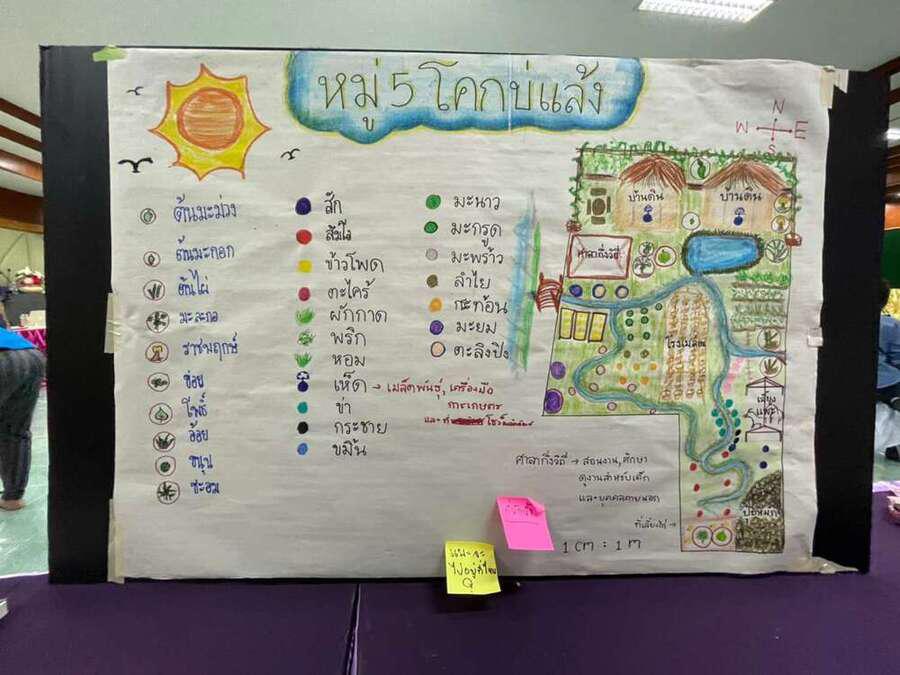 หมู่ 5 โคกบ่แล้ง
N
W E
S
ต้นมะม่วง
ต้นมะกอก
ต้นไผ่
มะละกอ
ราชพฤกษ์
ข่อย
โพธิ์
อ้อย
ขนุน
ชะอม
สัก
ส้มโอ
ข้าวโพด
ตะไคร้
ผักกาด
พริก
หอม
เห็ด → เมล็ดพันธุ์, เครื่องมือ
การเกษตร
ข่า
กระชาย
ขมิ้น
มะนาว
มะกรูด
มะพร้าว
ลำไย
กะท้อน
มะยม
ตะลิงปิง
บ้านดิน
บ้านดิน
ศาลากึ่งวิถี
ปุ๋ยหมัก
ศาลากึ่งวิถี → สอนงาน, ศึกษา
ดูงานสำหรับเด็ก
และบุคคลภายนอก
1 cm : 1 m